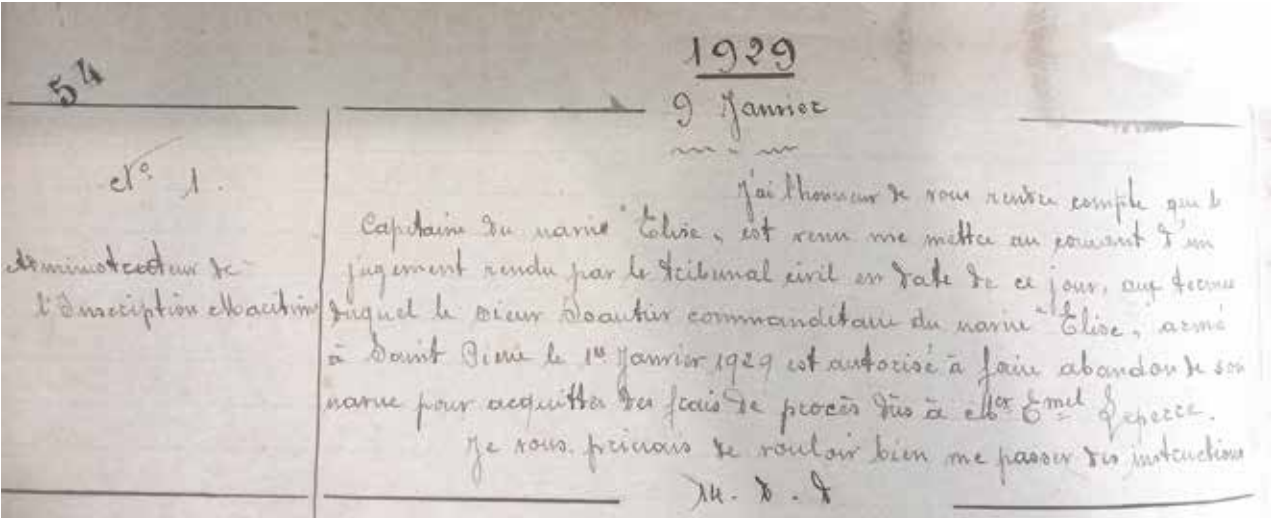 54
1929
9 Janvier
N° 1.
Administrateur de
l'Inscription Maritime
J'ai l'honneur de vous rendre compte que le
Capitaine du navire "Elise", est venu me mettre au courant d'un
jugement rendu par le tribunal civil en date de ce jour, aux termes
duquel le sieur commanditaire du navire "Elise", armé
à Saint Pierre le 1er Janvier 1929 est autorisé à faire abandon de son
navire pour acquitter des frais de procès dûs à Mer Emel Leperre.
Je vous prierais de vouloir bien me passer des instructions